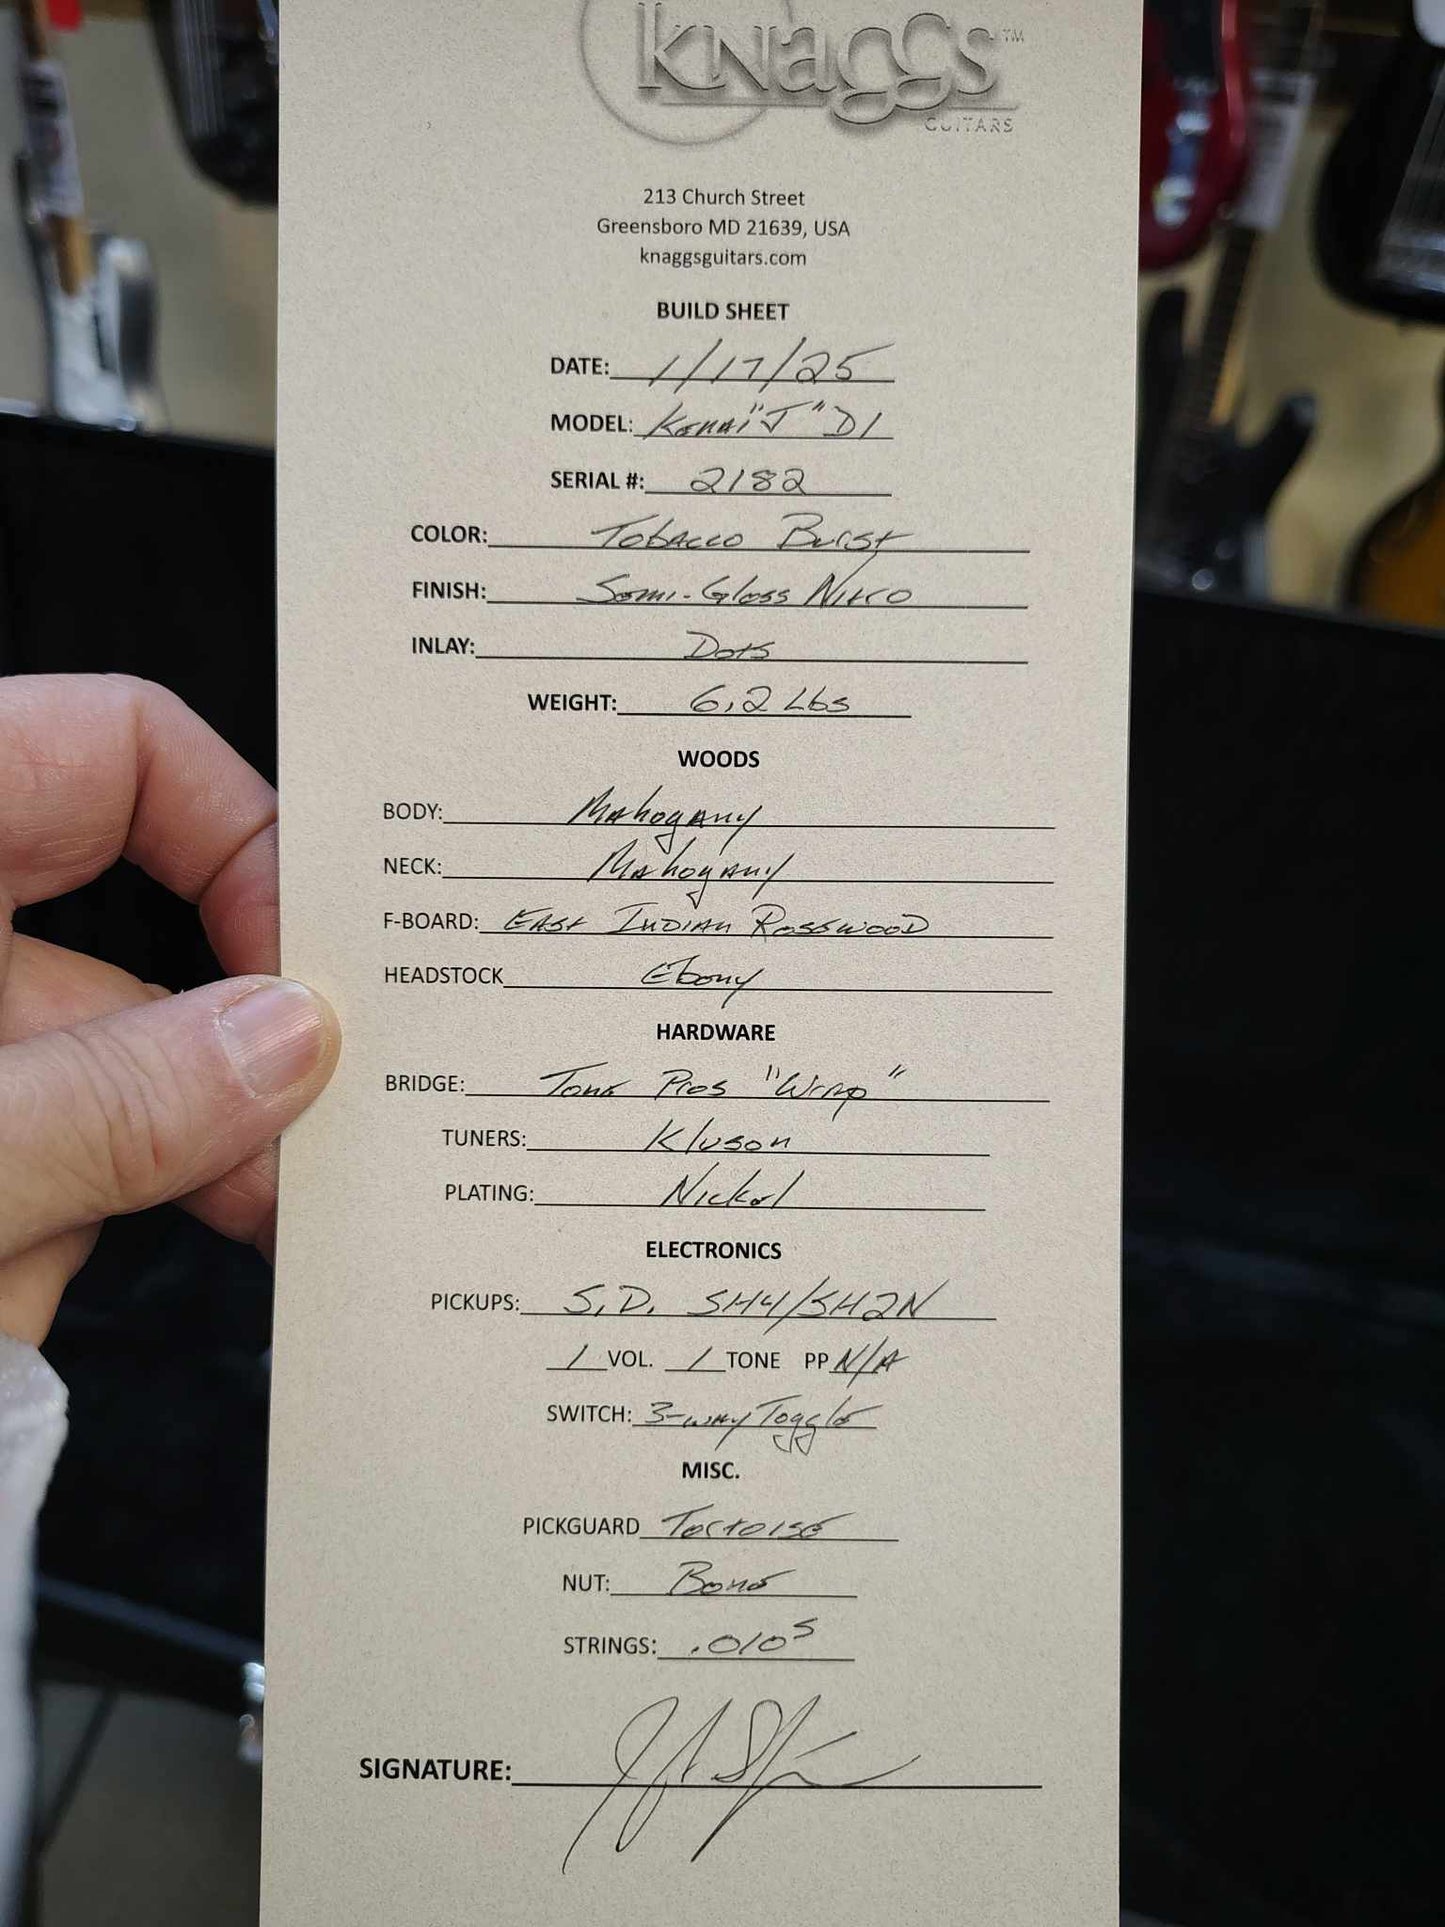 Knaggs™
GUITARS
213 Church Street
Greensboro MD 21639, USA
knaggsguitars.com
BUILD SHEET
DATE: 1/17/25
MODEL: Kenai "J" D1
SERIAL #: 2182
COLOR: Tobacco Burst
FINISH: Semi-Gloss Nitro
INLAY: Dots
WEIGHT: 6.2 Lbs
WOODS
BODY: Mahogany
NECK: Mahogany
F-BOARD: East Indian Rosewood
HEADSTOCK Ebony
HARDWARE
BRIDGE: Tone Pros "Wrap"
TUNERS: Kluson
PLATING: Nickel
ELECTRONICS
PICKUPS: S.D. SH4/SH2N
1 VOL. 1 TONE PP N/A
SWITCH: 3-way Toggle
MISC.
PICKGUARD Tortoise
NUT: Bone
STRINGS: .010s
SIGNATURE: